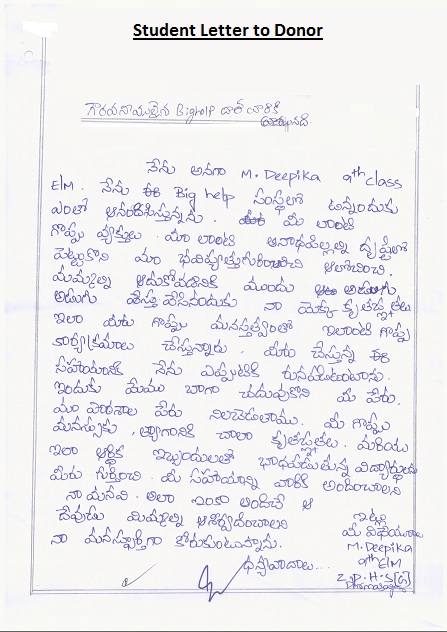 Student Letter to Donor
గౌరవనీయులైన Bighelp దాత వారికి
నేను అనగా M. Deepika 9th class
E/M. నేను ఈ Big help సంస్థలో ఉన్నందుకు
ఎంతో ఆనందిస్తున్నాను. మీ లాంటి
గొప్ప వ్యక్తులు మా లాంటి అనాథపిల్లల్ని దృష్టిలో
పెట్టుకొని మా భవిష్యత్తుగురించి ఆలోచించి.
మమ్మల్ని ఆదుకోవడానికి ముందు అడుగు
నా యొక్క కృతజ్ఞతలు
ఇలా మీరు గొప్ప మనస్తత్వంతో ఇలాంటి గొప్ప
కార్యక్రమాలు చేస్తున్నారు. మీరు చేస్తున్న ఈ
సహాయానికి నేను ఎప్పటికి రుణపడిఉంటాను.
ఇందుకు మేము బాగా చదువుకొని మీ పేరు.
మా పేరు నిలబెడతాము. మీ గొప్ప
మనస్సుకు, త్యాగానికి చాలా కృతజ్ఞతలు. మరియు
ఇలా ఆర్థిక ఇబ్బందులతో బాధపడుతున్న విద్యార్థులను
మీరు గుర్తించి. మీ సహాయాన్ని వారికి అందించాలని
నా మనవి. అలా ఇంకా అందించే ఆ
దేవుడు మిమ్మల్ని ఆశీర్వదించాలని
నా మనస్ఫూర్తిగా కోరుకుంటున్నాను.
ధన్యవాదాలు...
ఇట్లు
మీ విధేయురాలు
M. Deepika
9th E/M
Z.P.H.S[G]